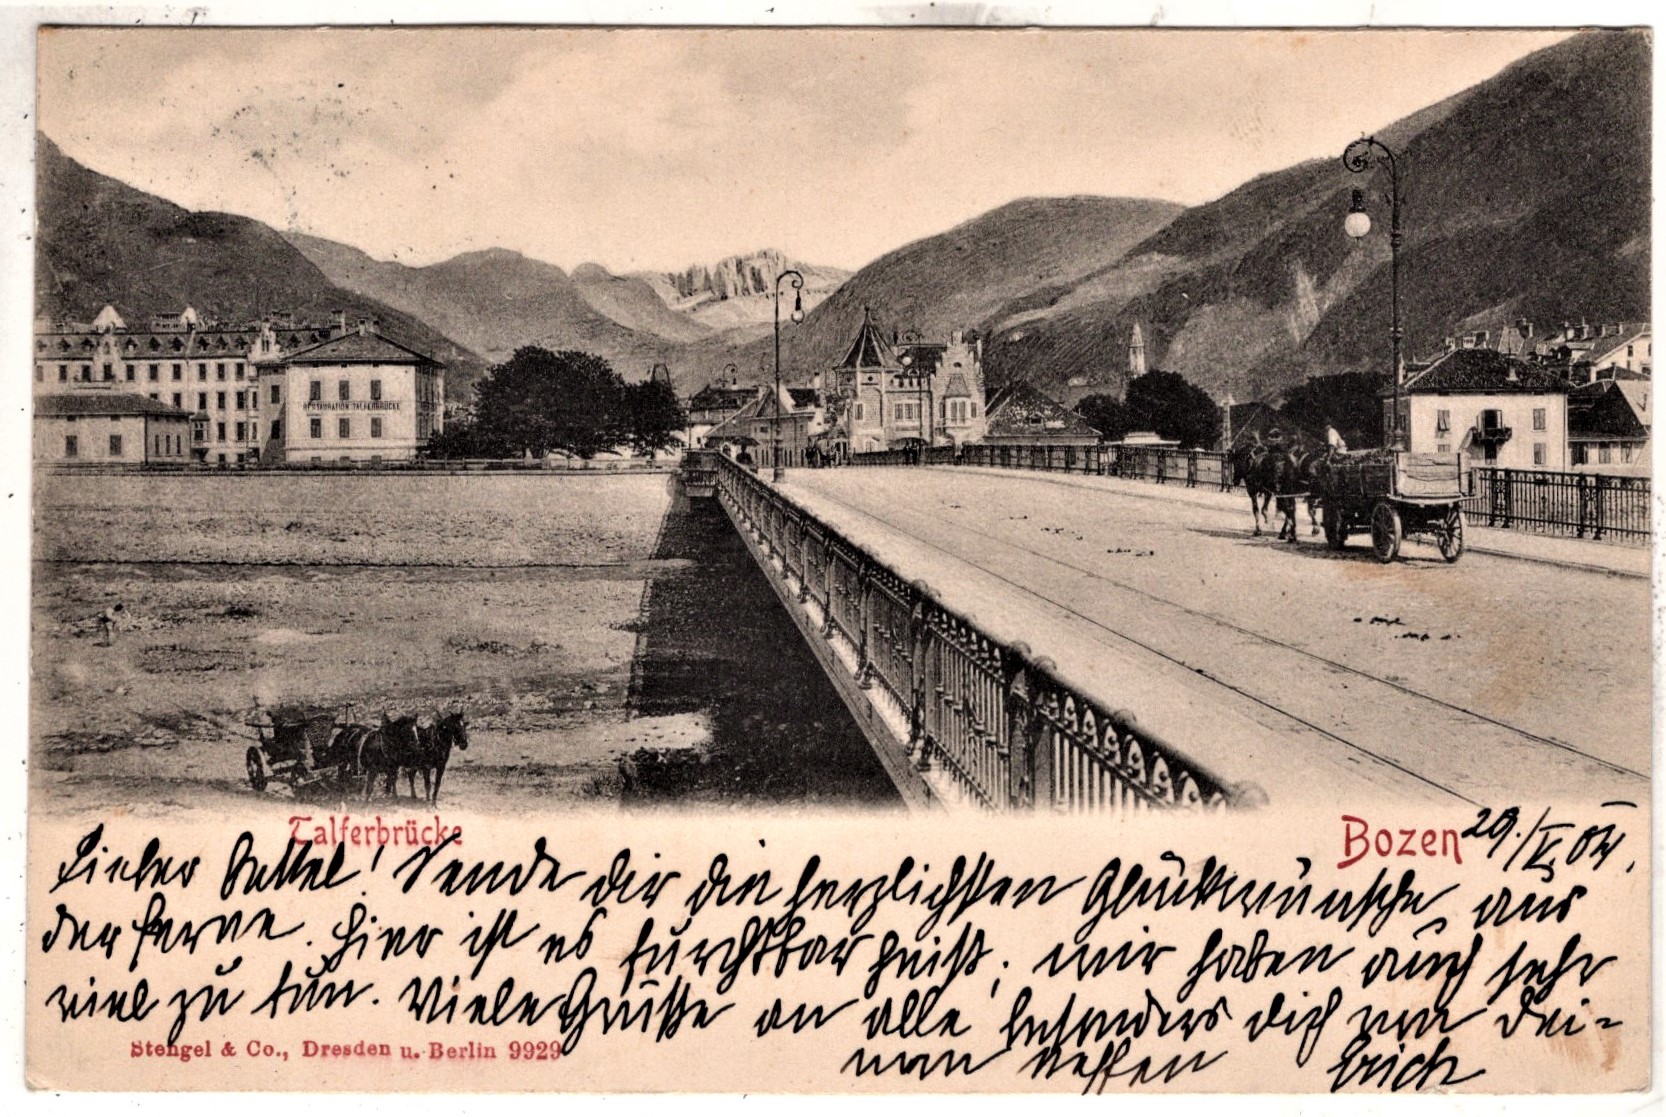 RESTAURATION TALFERBRÜCKE
Talferbrücke
Bozen 29./V. 04.
Lieber Onkel! Sende dir die herzlichsten Glückwünsche aus
der Ferne. Hier ist es furchtbar heiß; wir haben auch sehr
viel zu tun. Viele Grüße an alle besonders dich von Dei-
nem Neffen Erich
Stengel & Co., Dresden u. Berlin 9929